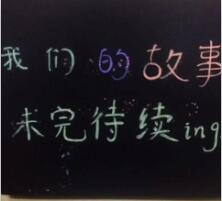 我们的故事
未完待续ing